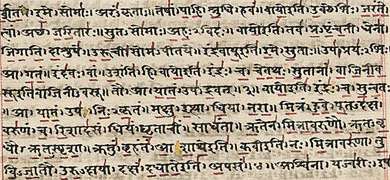 दर्शत । इमे । सोमाः । अरंऽकृताः । तेषां । पाहि । श्रुधि । हवं ॥ वायो इति । उक्थेभिः । जरंते
त्वां । अच्छ । जरितारः । सुतऽसोमाः । अहःऽविदः ॥ वायो इति । तव । प्रऽपृंचती । धेना
जिगाति । दाशुषे । उरूची । सोमऽपीतये ॥ इंद्रवायू इति । इमे । सुताः । उप । प्रयःऽभिः
आ । गतं । इंदवः । वां । उशंति । हि ॥ वायो इति । इंद्रः । च । चेतथः । सुतानां । वाजिनीव
सू इति वाजिनीऽवसू । तौ । आ । यातं । उप । द्रवत् ॥ ३ ॥ वायो इति । इंद्रः । च । सुन्वतः
आ । यातं । उप । निःऽकृतं । मक्षु । इत्था । धिया । नरा ॥ मित्रं । हुवे । पूतऽदक्षं
वरुणं । च । रिशादसं । धियं । घृताचीं । साधंता ॥ ऋतेन । मित्रावरुणौ । ऋतऽवृ
धौ । ऋतऽस्पृशा । क्रतुं । बृहंतं । आशाथे इति ॥ कवी इति । नः । मित्रावरुणा । तु
विऽजातौ । उरुऽक्षया । दक्षं । दधाते इति । अपसं ॥ ४ ॥ अश्विना । यज्वरीः । इ